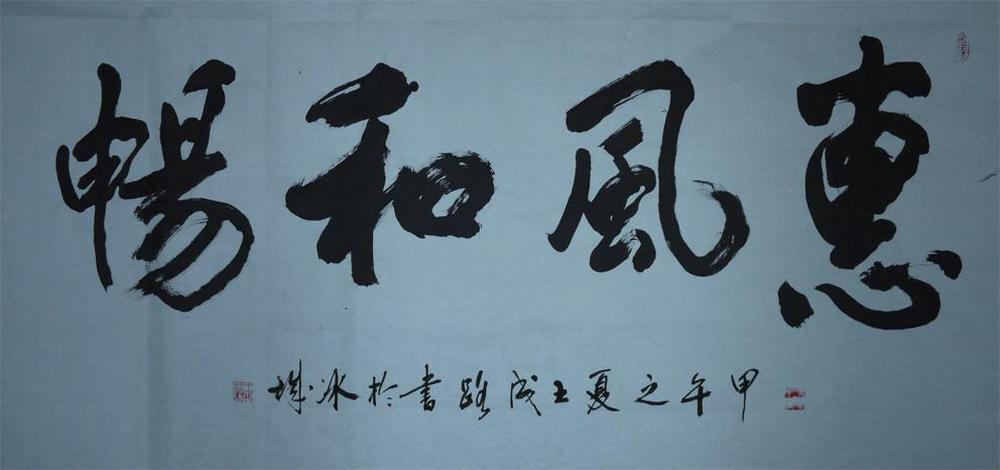 惠風和暢
甲午之夏王成路書於冰城